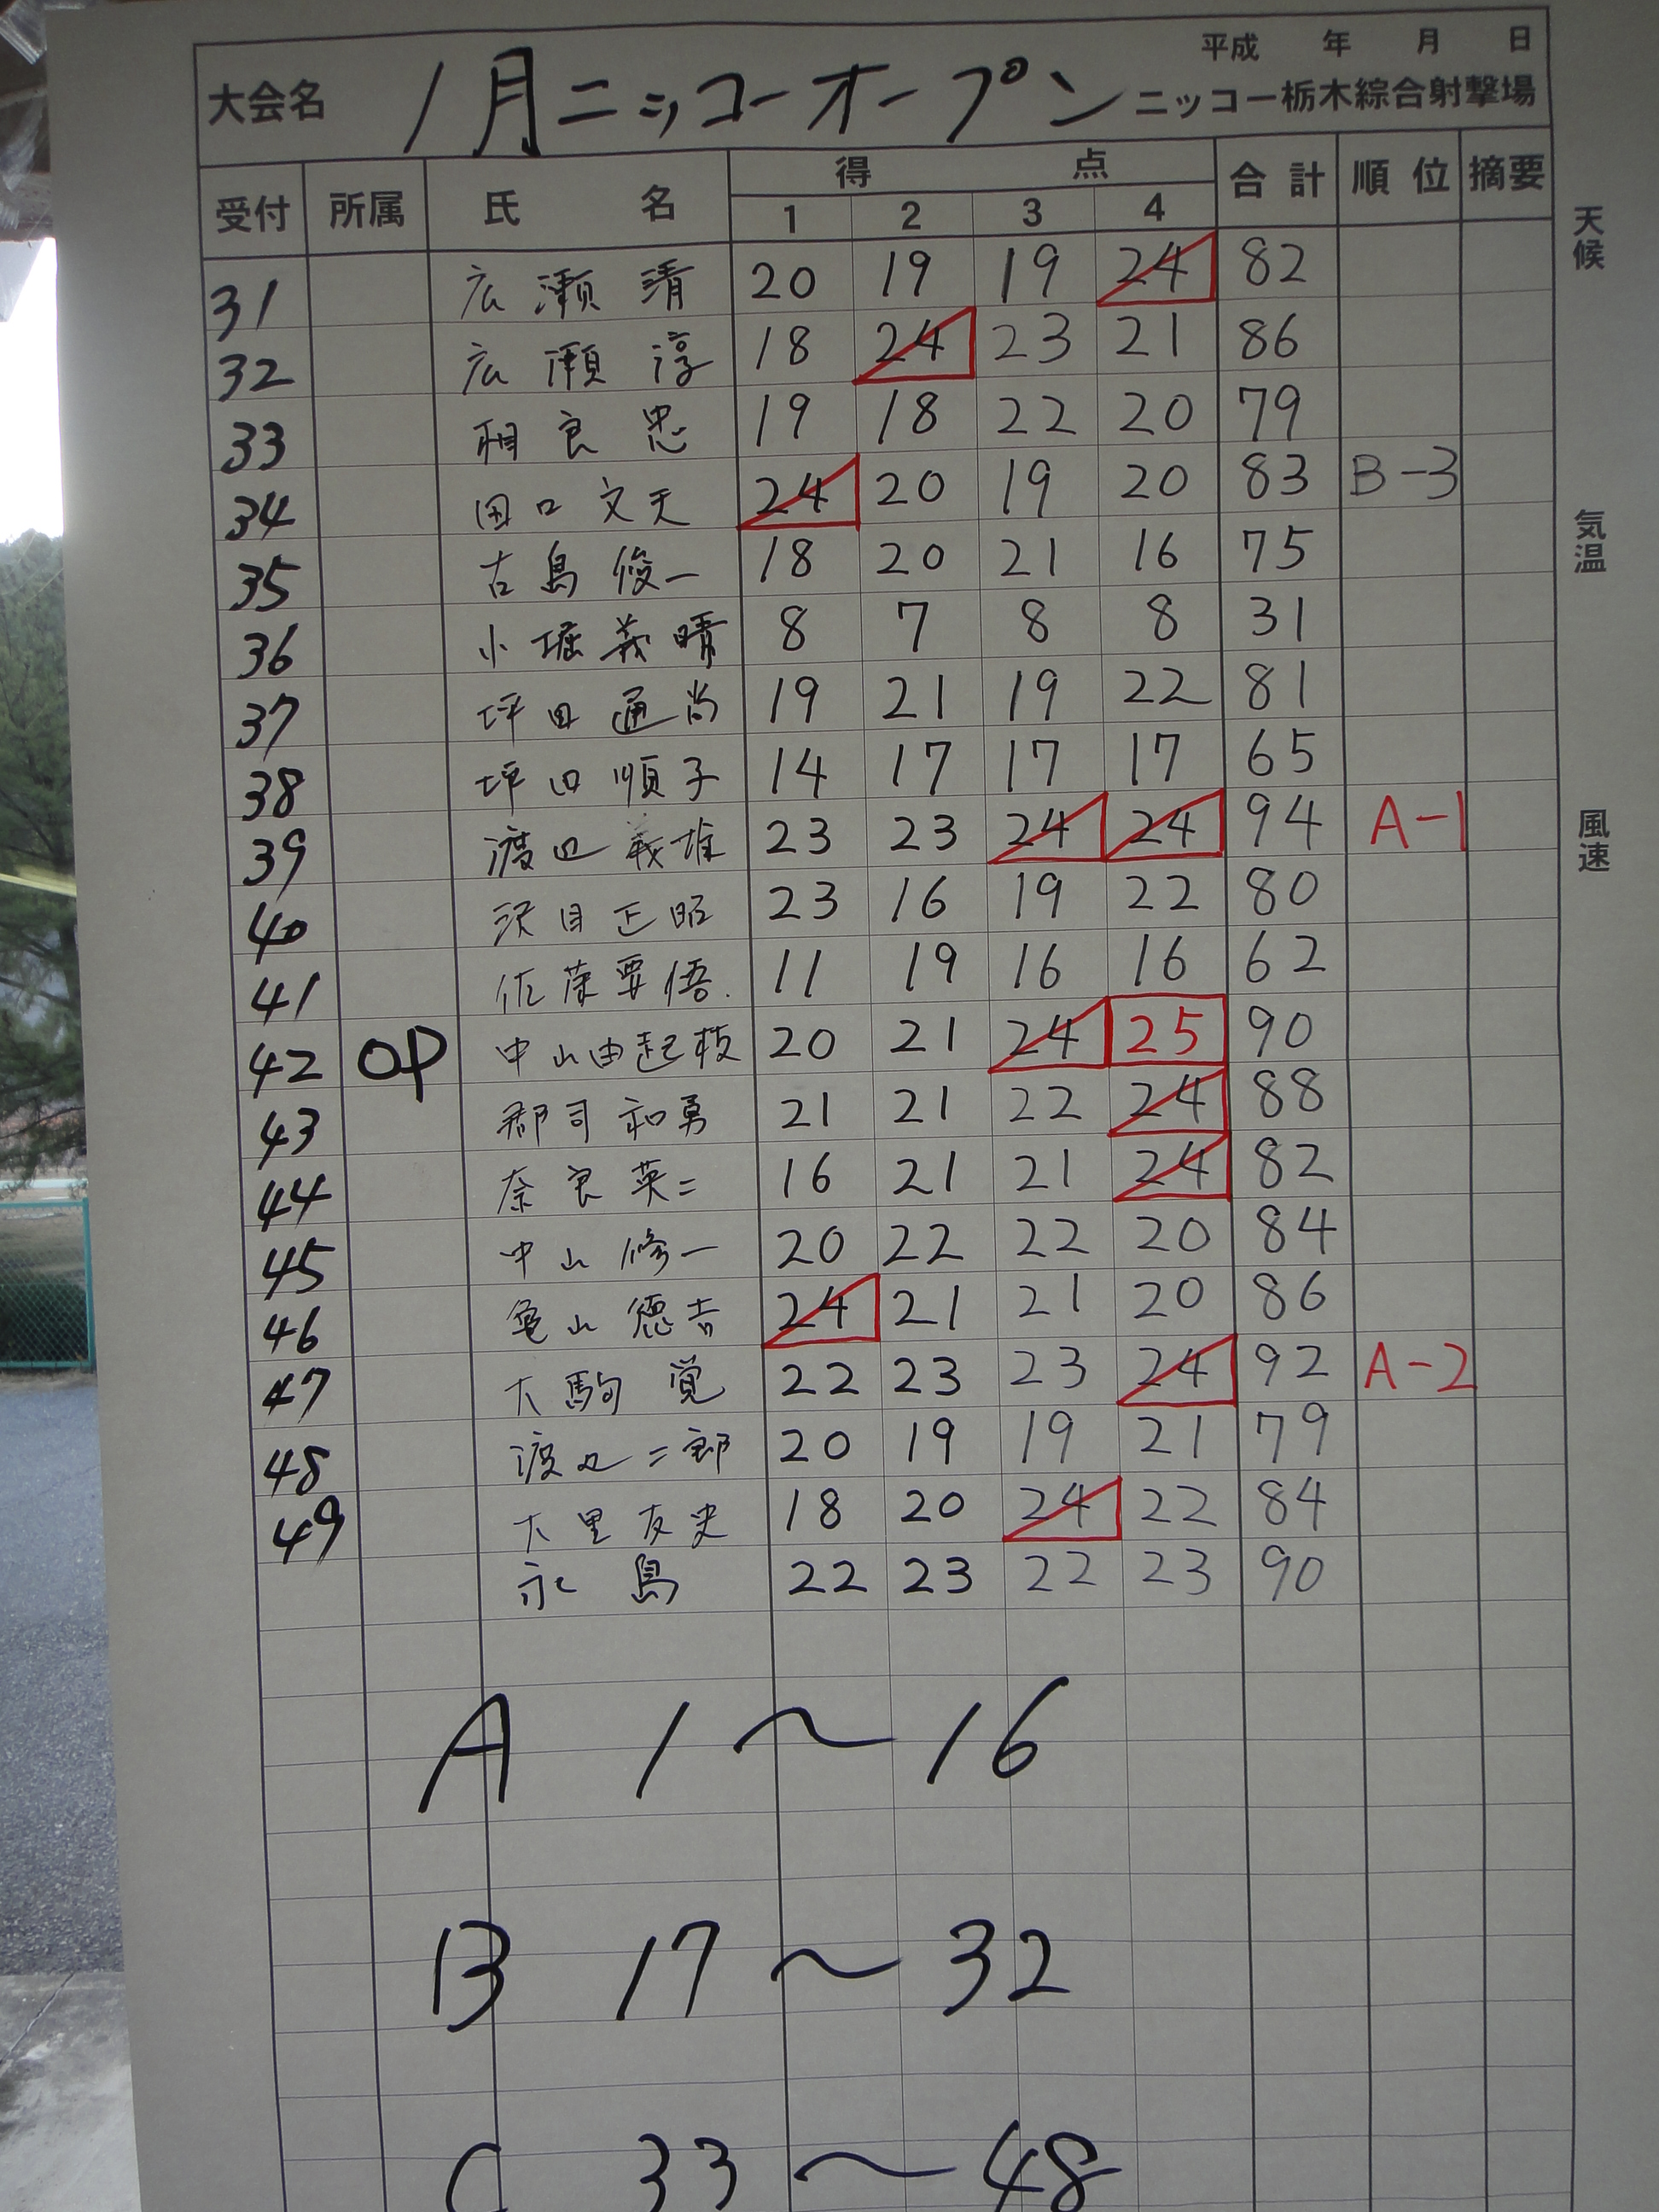 平成 年 月 日
大会名 1月ニッコーオープン ニッコー栃木綜合射撃場
受付 所属 氏 名 得 点 合計 順位 摘要
1 2 3 4
天候
気温
風速
31 広瀬清 20 19 19 24 82
32 広瀬淳 18 24 23 21 86
33 相良忠 19 18 22 20 79
34 田口文天 24 20 19 20 83 B-3
35 古島俊一 18 20 21 16 75
36 小堀義晴 8 7 8 8 31
37 坪田通尚 19 21 19 22 81
38 坪田順子 14 17 17 17 65
39 渡辺義雄 23 23 24 24 94 A-1
40 沢目正昭 23 16 19 22 80
41 佐藤要悟 11 19 16 16 62
42 OP 中山由起枝 20 21 24 25 90
43 郡司和勇 21 21 22 24 88
44 奈良英二 16 21 21 24 82
45 中山修一 20 22 22 20 84
46 亀山徳吉 24 21 21 20 86
47 大駒覚 22 23 23 24 92 A-2
48 渡辺二郎 20 19 19 21 79
49 大里友史 18 20 24 22 84
永島 22 23 22 23 90
A 1〜16
B 17〜32
C 33〜48